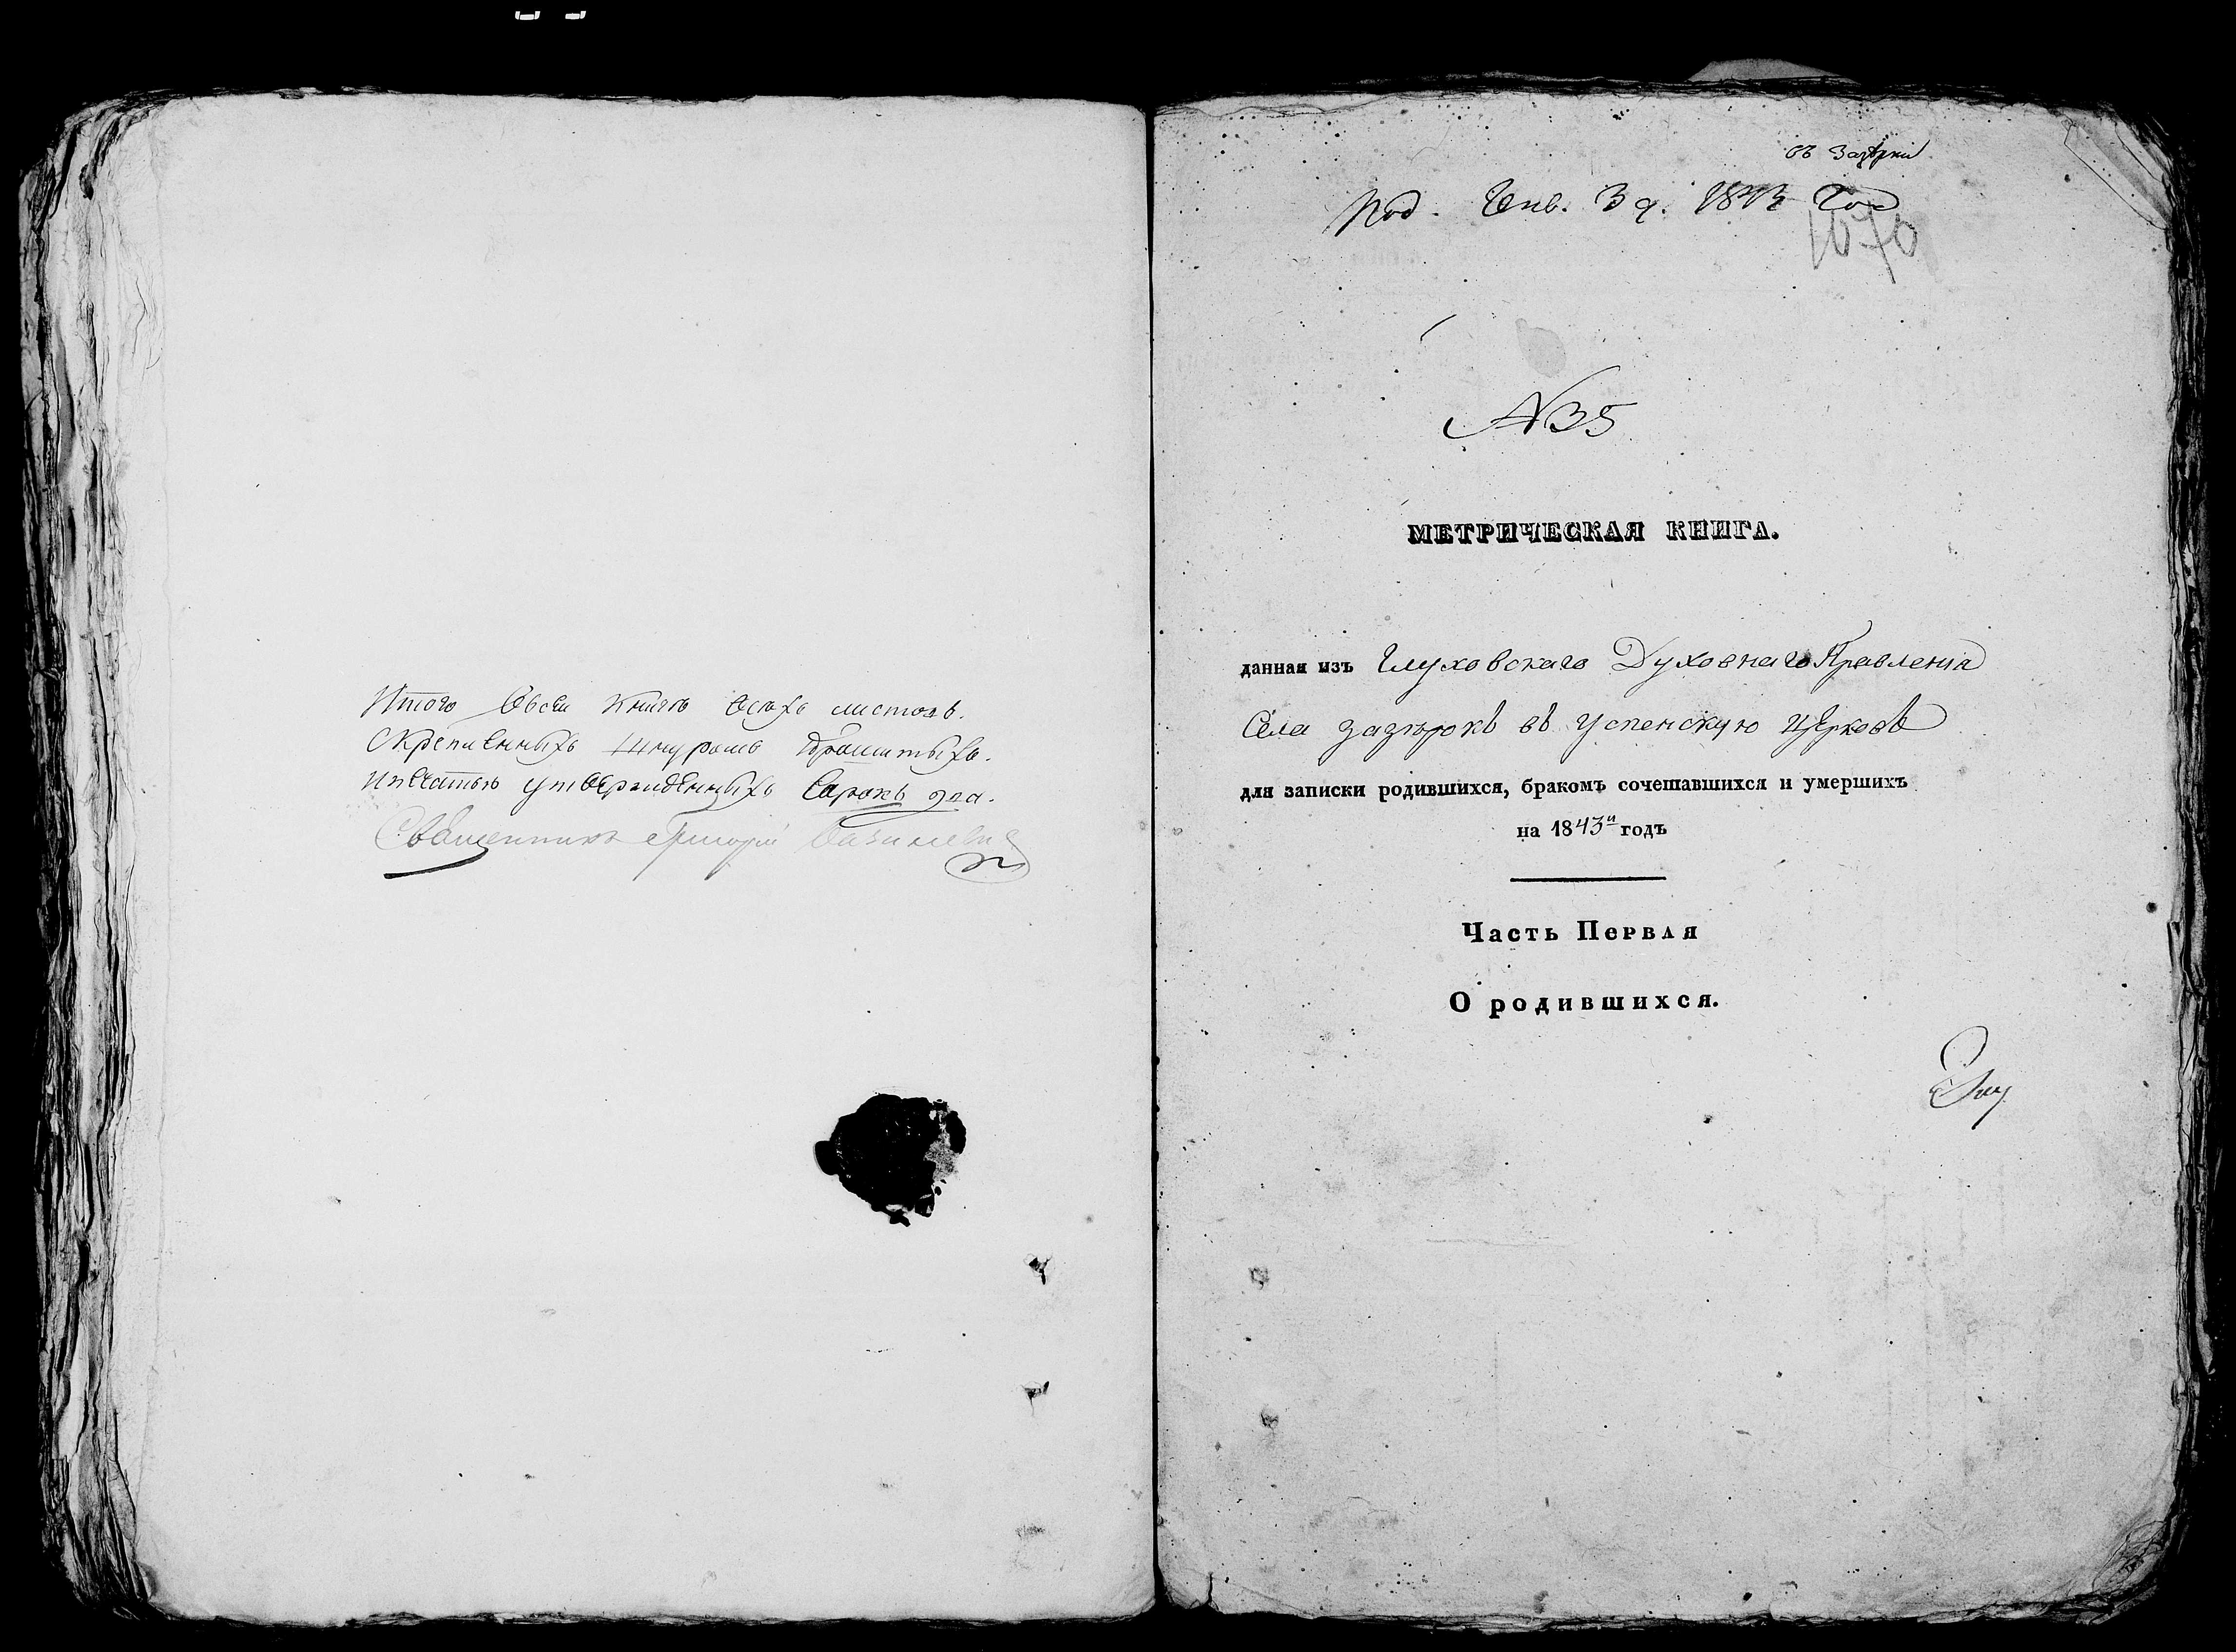 Итого Всей Книге Всехъ листовъ.
Скрепленныхъ Шнуромъ
ипечатью утвержденныхъ Сорокъ два.
Священникъ Григорій
въ Зазѣрки
Род. Янв. 3 д. 1843 Год
1670
№35
МЕТРИЧЕСКАЯ КНИГА.
данная изъ Глуховскаго Духовнаго Правленія
Села зазѣрокъ въ успенскую церковь
для записки родившихся, бракомъ сочетавшихся и умершихъ
на 1843й годъ
Часть Первая
О родившихся.